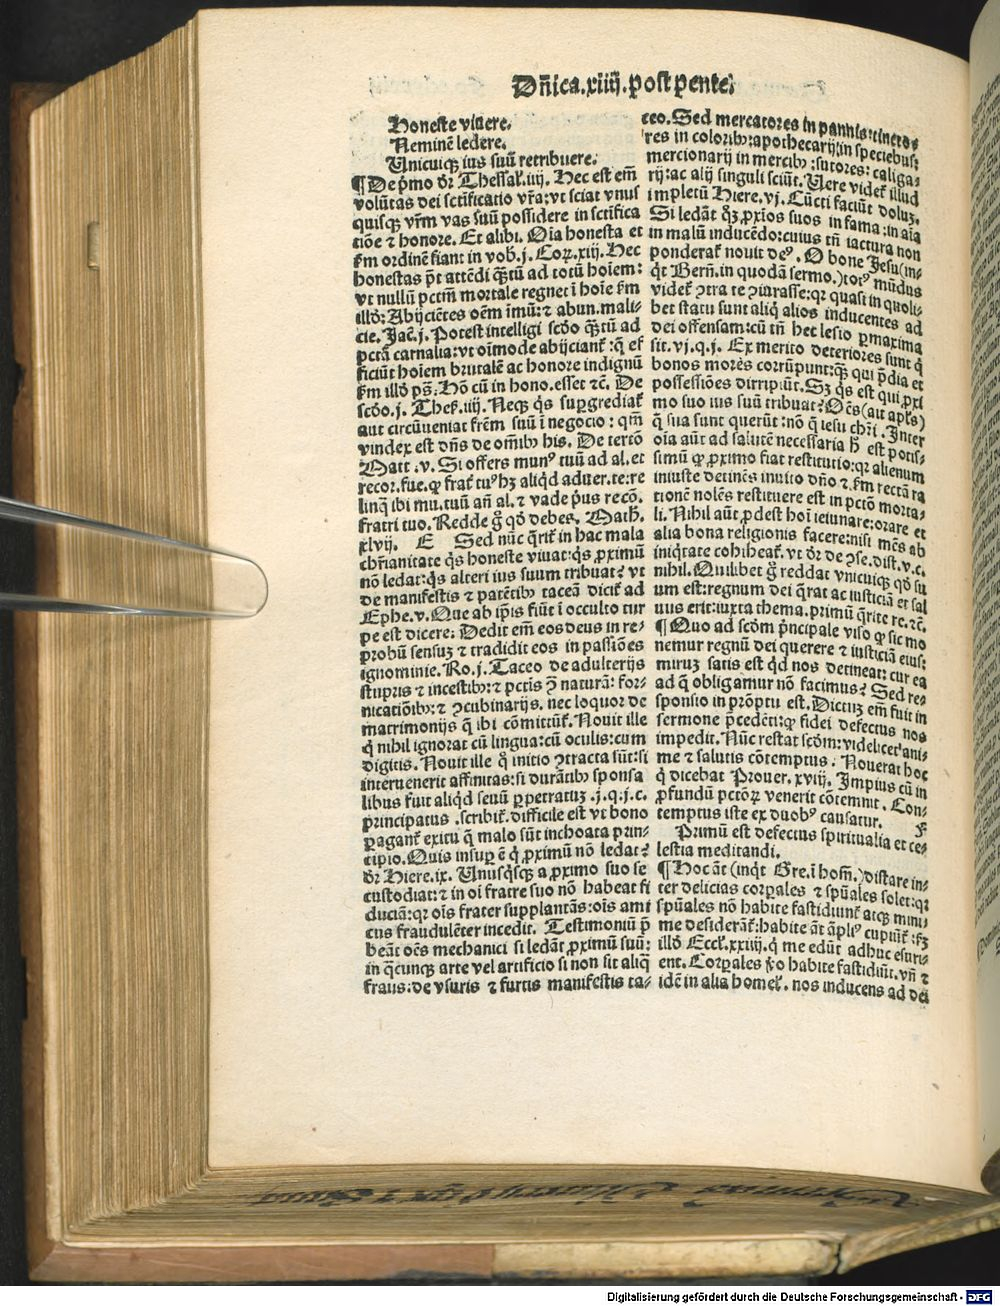 Dn̄ica.xiiij.post pente.
Honeste viuere.
Neminē ledere.
Unicuiqꝫ ius suū retribuere.
¶ De pͥmo dr̄ Thessal.iiij. Hec est em̄
volūtas dei sctīficatio vr̄a: vt sciat vnus
quisqꝫ vr̄m vas suū possidere in sctīfica
tiōe ⁊ honore. Et alibi. Oīa honesta et
fm ordinē fiant in vob̄.j. Coꝝ.xiij. Hec
honestas pt̄ attēdi qͣꝫtū ad totū hoīem:
vt nullū pctm̄ mortale regnet ī hoīe fm
illd̄: Abijciētes oēm īmū: ⁊ abun. mali-
cie. Jac̄.j. Potest intelligi scd̄o qͣꝫtū ad
pctā carnalia: vt oīmode abijcianť: q̄ ef
ficiūt hoīem brutalē ac honore indignū
fm illd̄ ps̄: Hō cū in hono. esset ⁊c̄. De
scd̄o.j. Thes̄.iiij. Neqꝫ qͥs supgrediať
aut circūueniat frēm suū ī negocio: qm̄
vindex est dn̄s de om̄ibꝫ his. De tertō
Matt.v. Si offers munꝰ tuū ad al. et
recor. fue. ꝙ frať tuꝰ hꝫ aliqd̄ aduer. te: re
linq̄ ibi mu. tuū an̄ al. ⁊ vade pͥus recō.
fratri tuo. Redde gͦ qd̄ debes. Math.
xlvij. E Sed nūc q̄riť in hac mala
chrīanitate qͥs honeste viuat: qͥs ꝓximū
nō ledat: qͥs alteri ius suum tribuat? vt
de manifestis ⁊ patētibꝫ taceā diciť ad
Ephe.v. Que ab ip̄is fiūt ī occulto tur
pe est dicere: Dedit em̄ eos deus in re-
probū sensuꝫ ⁊ tradidit eos in passiōes
ignominie. Ro.j. Taceo de adulterijs
stupris ⁊ incestibꝫ: ⁊ pctīs ꝯ̄ naturā: for-
nicatiōibꝫ: ⁊ ꝯcubinarijs. nec loquor de
matrimonijs q̄ ibi cōmittūť. Nouit ille
qͥ nihil ignorat cū lingua: cū oculis: cum
digitis. Nouit ille q̄ initio ꝯtracta sūt: si
interuenerit affinitas: si durātibꝫ sponsa
libus fuit aliqd̄ seuū ꝑpetratuꝫ.j.q.j.c.
principatus. scribiť. difficile est vt bono
ꝑaganť exitu q̄ malo sūt inchoata prin-
cipio. Quis insup ē qͥ ꝓximū nō ledat?
dr̄ Hiere.ix. Unusqͥsqꝫ a ꝓximo suo se
custodiat: ⁊ in oī fratre suo nō habeat fi
duciā: qꝛ oīs frater supplantās: oīs ami
cus fraudulēter incedit. Testimoniū ꝑ
beāt oēs mechanici si ledāt ꝓximū suū:
in q̄cunqꝫ arte vel artificio si non sit aliq̄
fraus: de vsuris ⁊ furtis manifestis ta-
ceo. Sed mercatores in pannis: tincto
res in coloribꝫ: apothecarij in speciebus:
mercionarij in mercibꝫ: sutores: caliga-
rij: ac alij singuli sciūt. Uere videť illud
impletū Hiere.vj. Cūcti faciūt doluꝫ.
Si ledāt qͦꝫ ꝓxīos suos in fama: in aīa
in malū inducēdo: cuius tn̄ iactura non
ponderať nouit deꝰ. O bone Jesu (in-
qͥt Bern̄. in quodā sermo.) totꝰ mūdus
videť ꝯtra te ꝯiurasse: qꝛ quasi in quoli-
bet statu sunt aliqͥ alios inducentes ad
dei offensam: cū tn̄ hec lesio ꝑ maxima
sit.vj.q.j. Ex merito deteriores sunt qͥ
bonos mores corrūpunt: qͣꝫ qui p̄dia et
possessiōes dirripiūt. Sꝫ qͥs est qui ꝓxi
mo suo ius suū tribuat? Oēs (ait apľs)
q̄ sua sunt querūt: nō q̄ iesu chrī. Inter
oīa aūt ad salutē necessaria h̄ est potis-
simū ꝙ ꝓximo fiat restitutio: qꝛ alienum
iniuste detinēs inuito dn̄o ⁊ fm rectā ra
tionē nolēs restituere est in pctō morta-
li. Nihil aūt ꝓdest hoī ieiunare: orare et
alia bona religionis facere: nisi mēs ab
iniqͥtate cohibeať. vt dr̄ de ꝯse.dist.v.c.
nihil. Quilibet gͦ reddat vnicuiqꝫ qd̄ su
um est: regnum dei q̄rat ac iusticiā et sal
uus erit: iuxta thema. primū q̄rite re.⁊c̄.
¶ Quo ad scd̄m pͥncipale viso ꝙ sic mo
nemur regnū dei querere ⁊ iusticiā eius:
miruꝫ satis est qd̄ nos detineat: cur ea
ad q̄ obligamur nō facimus? Sed re-
sponsio in prōptu est. Dictuꝫ em̄ fuit in
sermone p̄cedēti: ꝙ fidei defectus nos
impedit. Nūc restat scd̄m: videlicet ani-
me ⁊ salutis cōtemptus. Nouerat hoc
qͥ dicebat Prouer.xviij. Impius cū in
ꝓfundū pctōꝝ venerit cōtemnit. Con-
temptus iste ex duobꝰ causatur. F
Primū est defectus spiritualia et ce-
lestia meditandi.
¶ Hoc āt (inqͥt Gre. ī hom̄.) distare in-
ter delicias corꝑales ⁊ spūales solet: qꝛ
spūales nō habite fastidiunť atqꝫ mini-
me desiderāť: habite āt āpliꝰ cupiūť: fꝫ
illd̄ Eccľ.xxiiij. qͥ me edūt adhuc esuri-
ent. Corꝑales ꝟo habite fastidiūť. vn̄ ⁊
idē in alia homeľ. nos inducens ad dei
Digitalisierung gefördert durch die Deutsche Forschungsgemeinschaft - DFG